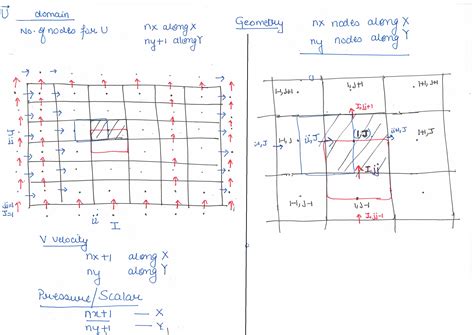 U domain
No. of nodes for U
nx along X
ny+1 along Y
Geometry
nx nodes along X
ny nodes along Y
ii I
V velocity
nx+1 along X
ny along Y
Pressure/Scalar
nx+1 — X
ny+1 — Y
I-1,J+1
I,J+1
I+1,J+1
I,jj+1
I-1,J
ii,J
I,J
ii+1,J
I+1,J
I,jj
I-1,J-1
I,J-1
I,jj-1
I+1,J-1